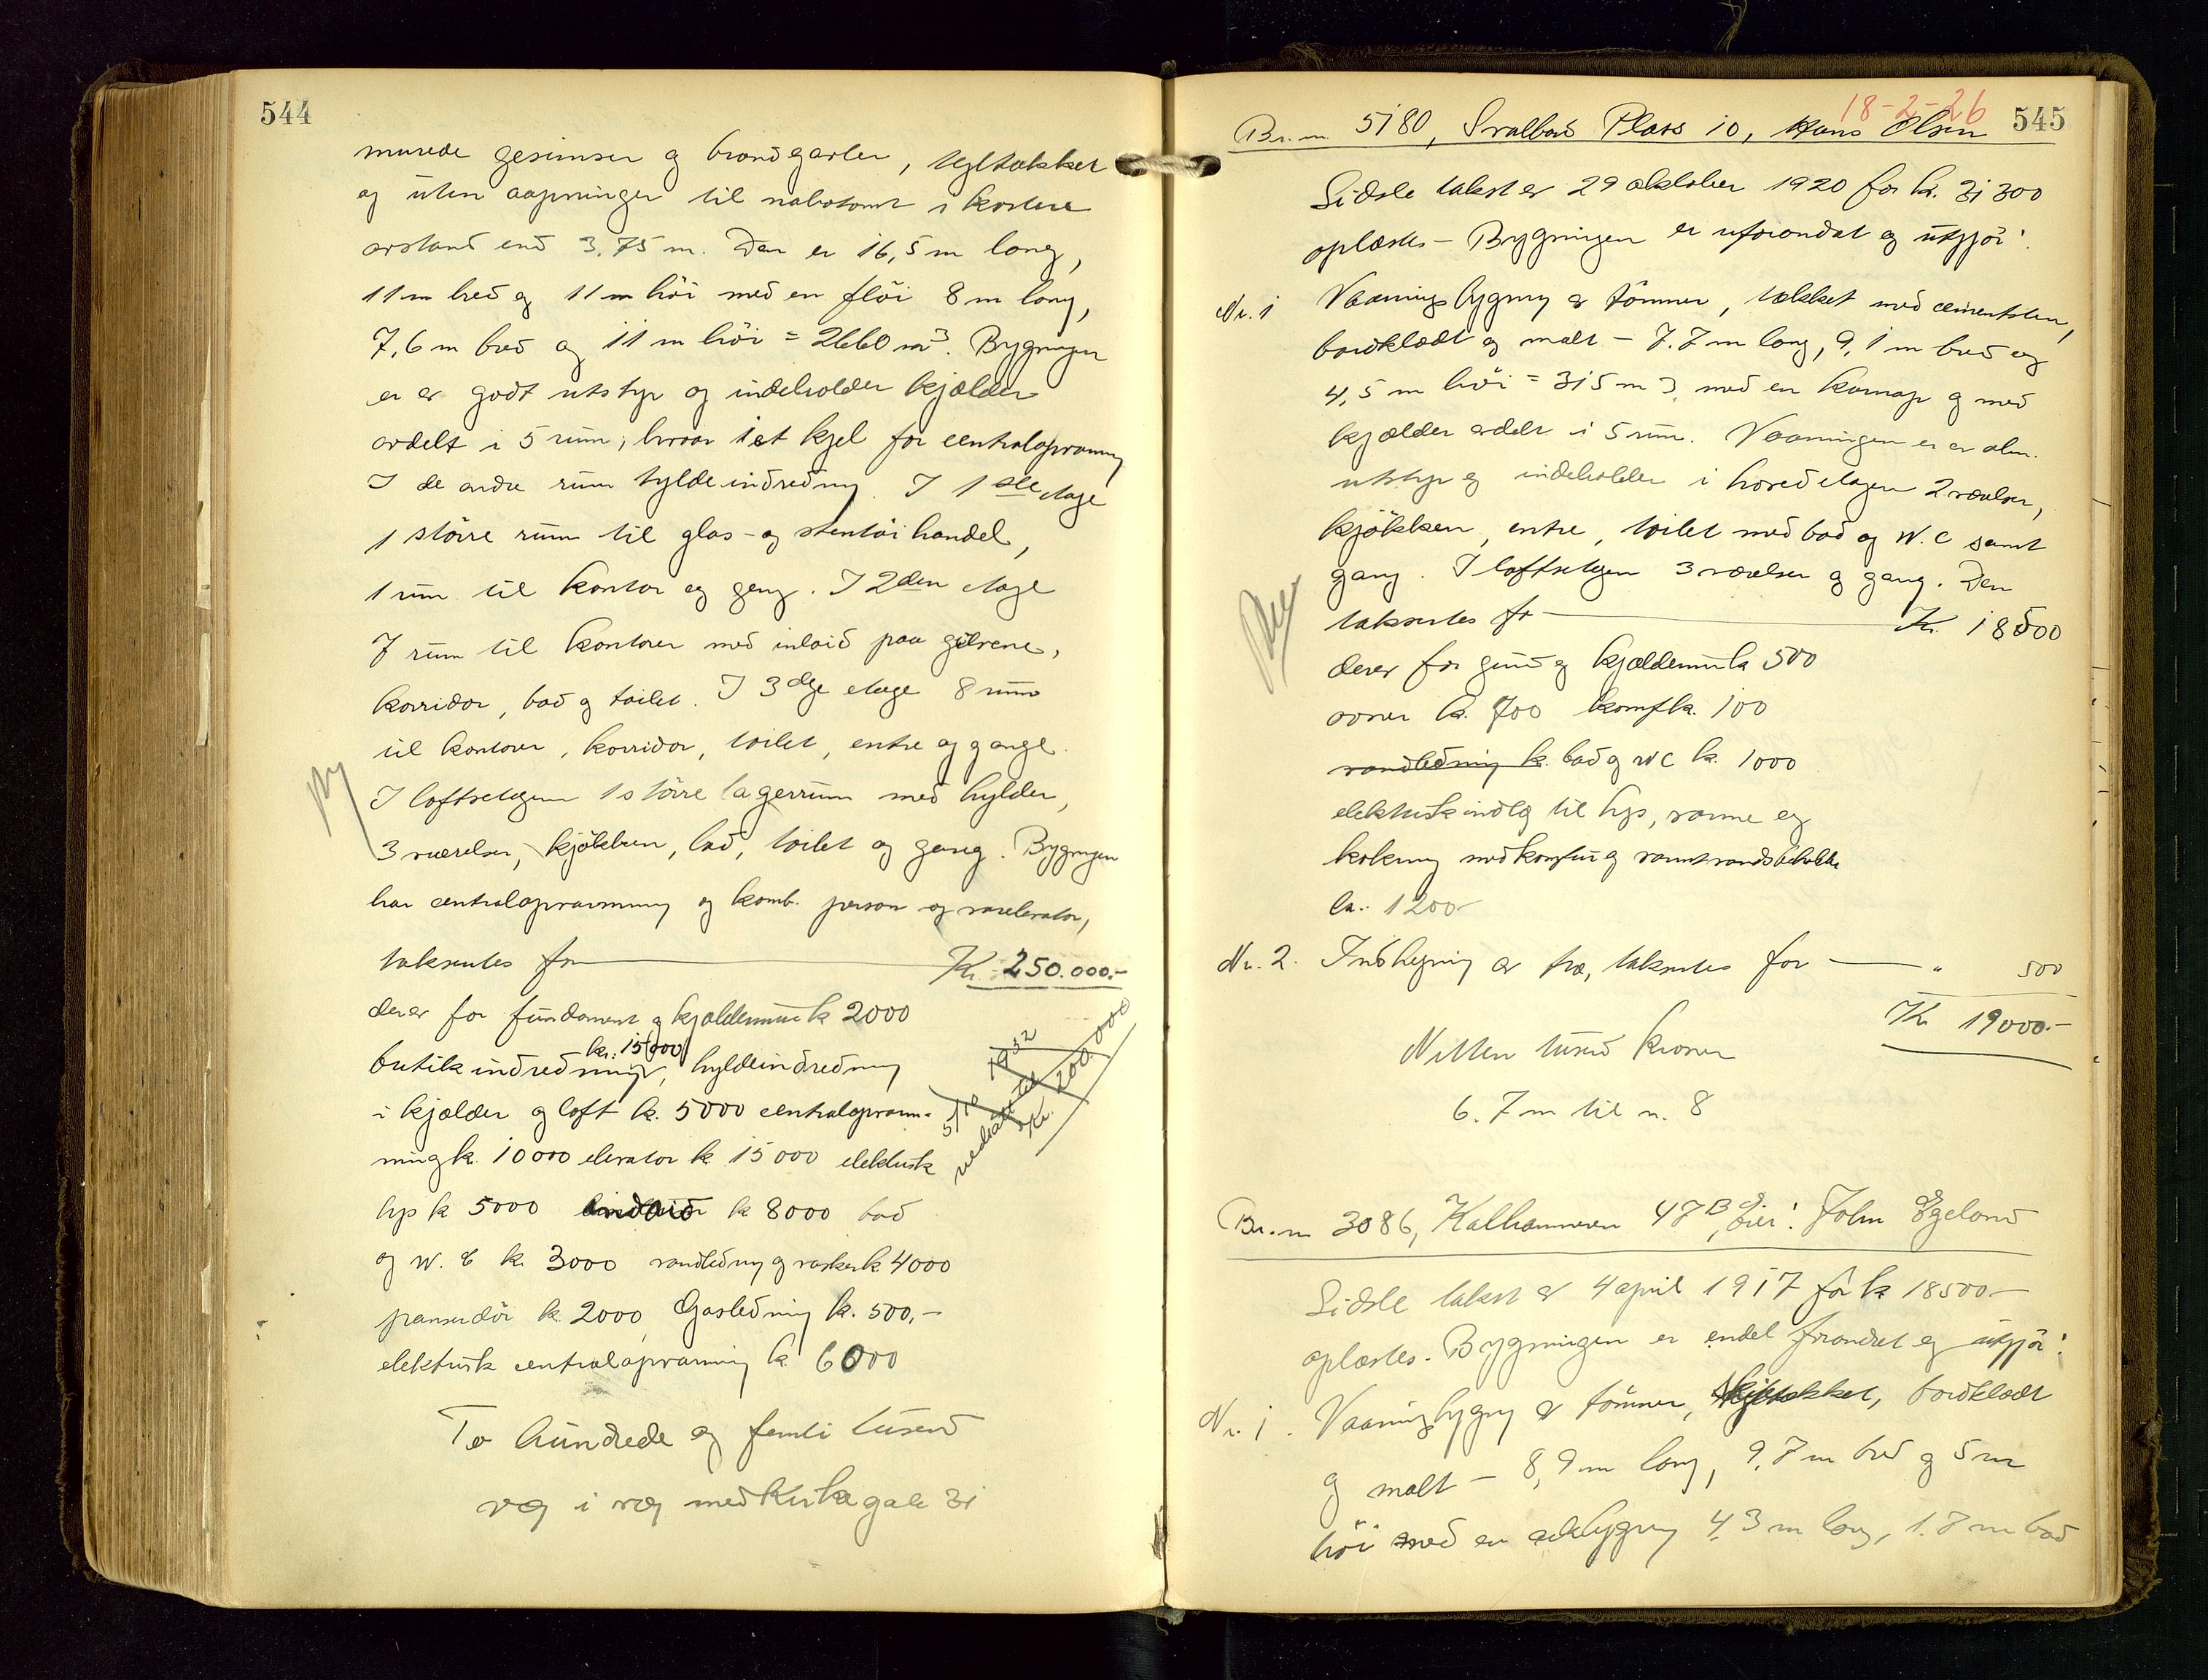 544
murede gesimser og brandgavler, tegltækket
og uten aapninger til nabotomt i kortere
avstand end 3,75 m. Den er 16,5 m lang,
11 m bred og 11 m høi med en fløi 8 m lang,
7,6 m bred og 11 m høi = 2660 m3. Bygningen
er av godt utstyr og indeholder kjælder
avdelt i 5 rum, hvorav i et kjel for centralopvarmning
I de andre rum hyldeindredning. I 1ste etage
1 større rum til glas- og stentøi handel,
1 rum til kontor og gang. I 2den etage
7 rum til kontorer med inlaid paa gulvene,
korridor, bad og toilet. I 3dje etage 8 rum
til kontorer, korridor, toilet, entre og gange.
I loftsetagen 1 større lagerrum med hylder,
3 værelser, kjøkken, bad, toilet og gang. Bygningen
har centralopvarmning og komb. person og vareelevator,
taksertes for Kr. 250.000.-
derav for fundament og kjældermur k 2000
kr. 15000
butikindredning, hyldeindredning
i kjælder og loft k. 5000 centralopvarm-
ning k. 10000 elevator k 15000 elektrisk
lys k 5000 k 8000 bad
og W. C k. 3000 vandledning og vasker k 4000
panserdør k. 2000 Gasledning k. 500,-
elektrisk centralopvarmning k. 6000
5/10 1932
nedsat til
Kr. 200.000
To hundrede og femti tusend
væg i væg med Kirkegate 31
18-2-26
545
Br. nr 5180, Svalbard Plass 10, Hans Olsen
Sidste takst av 29 oktober 1920 for kr. 31300
oplæstes - Bygningen er uforandret og utgjør:
Nr. 1 Vaaningsbygning av tømmer, tækket med cementsten,
bordklædt og malt - 7.7 m lang, 9,1 m bred og
4,5 m høi = 315 m3, med en karnap og med
kjælder avdelt i 5 rum. Vaaningen er av alm.
utstyr og indeholder i hovedetagen 2 værelser,
kjøkken, entre, toilet med bad og W.C samt
gang. I loftsetagen 3 værelser og gang. Den
taksertes for Kr. 18500
derav for grund og kjældermur k 500
ovner k. 700 komf k. 100
vandledning k. bad og WC k. 1000
elektrisk indlg til lys, varme og
kokning med komfur og varmtvandsbeholder
k. 1200-
Nr. 2. Indhegning av træ, taksertes for " 500
Kr 19000.-
Nitten tusend kroner
6.7 m til n. 8
Br. nr 3086, Kalhammeren 47B, Eier: John Egeland
Sidste takst av 4 april 1917 for k 18500-
oplæstes. Bygningen er endel forandret og utgjør:
Nr. 1. Vaaningsbygning av tømmer, bordklædt
og malt - 8,9 m lang, 9,7 m bred og 5 m
høi med en utbygning 4,3 m lang, 1.7 m bred